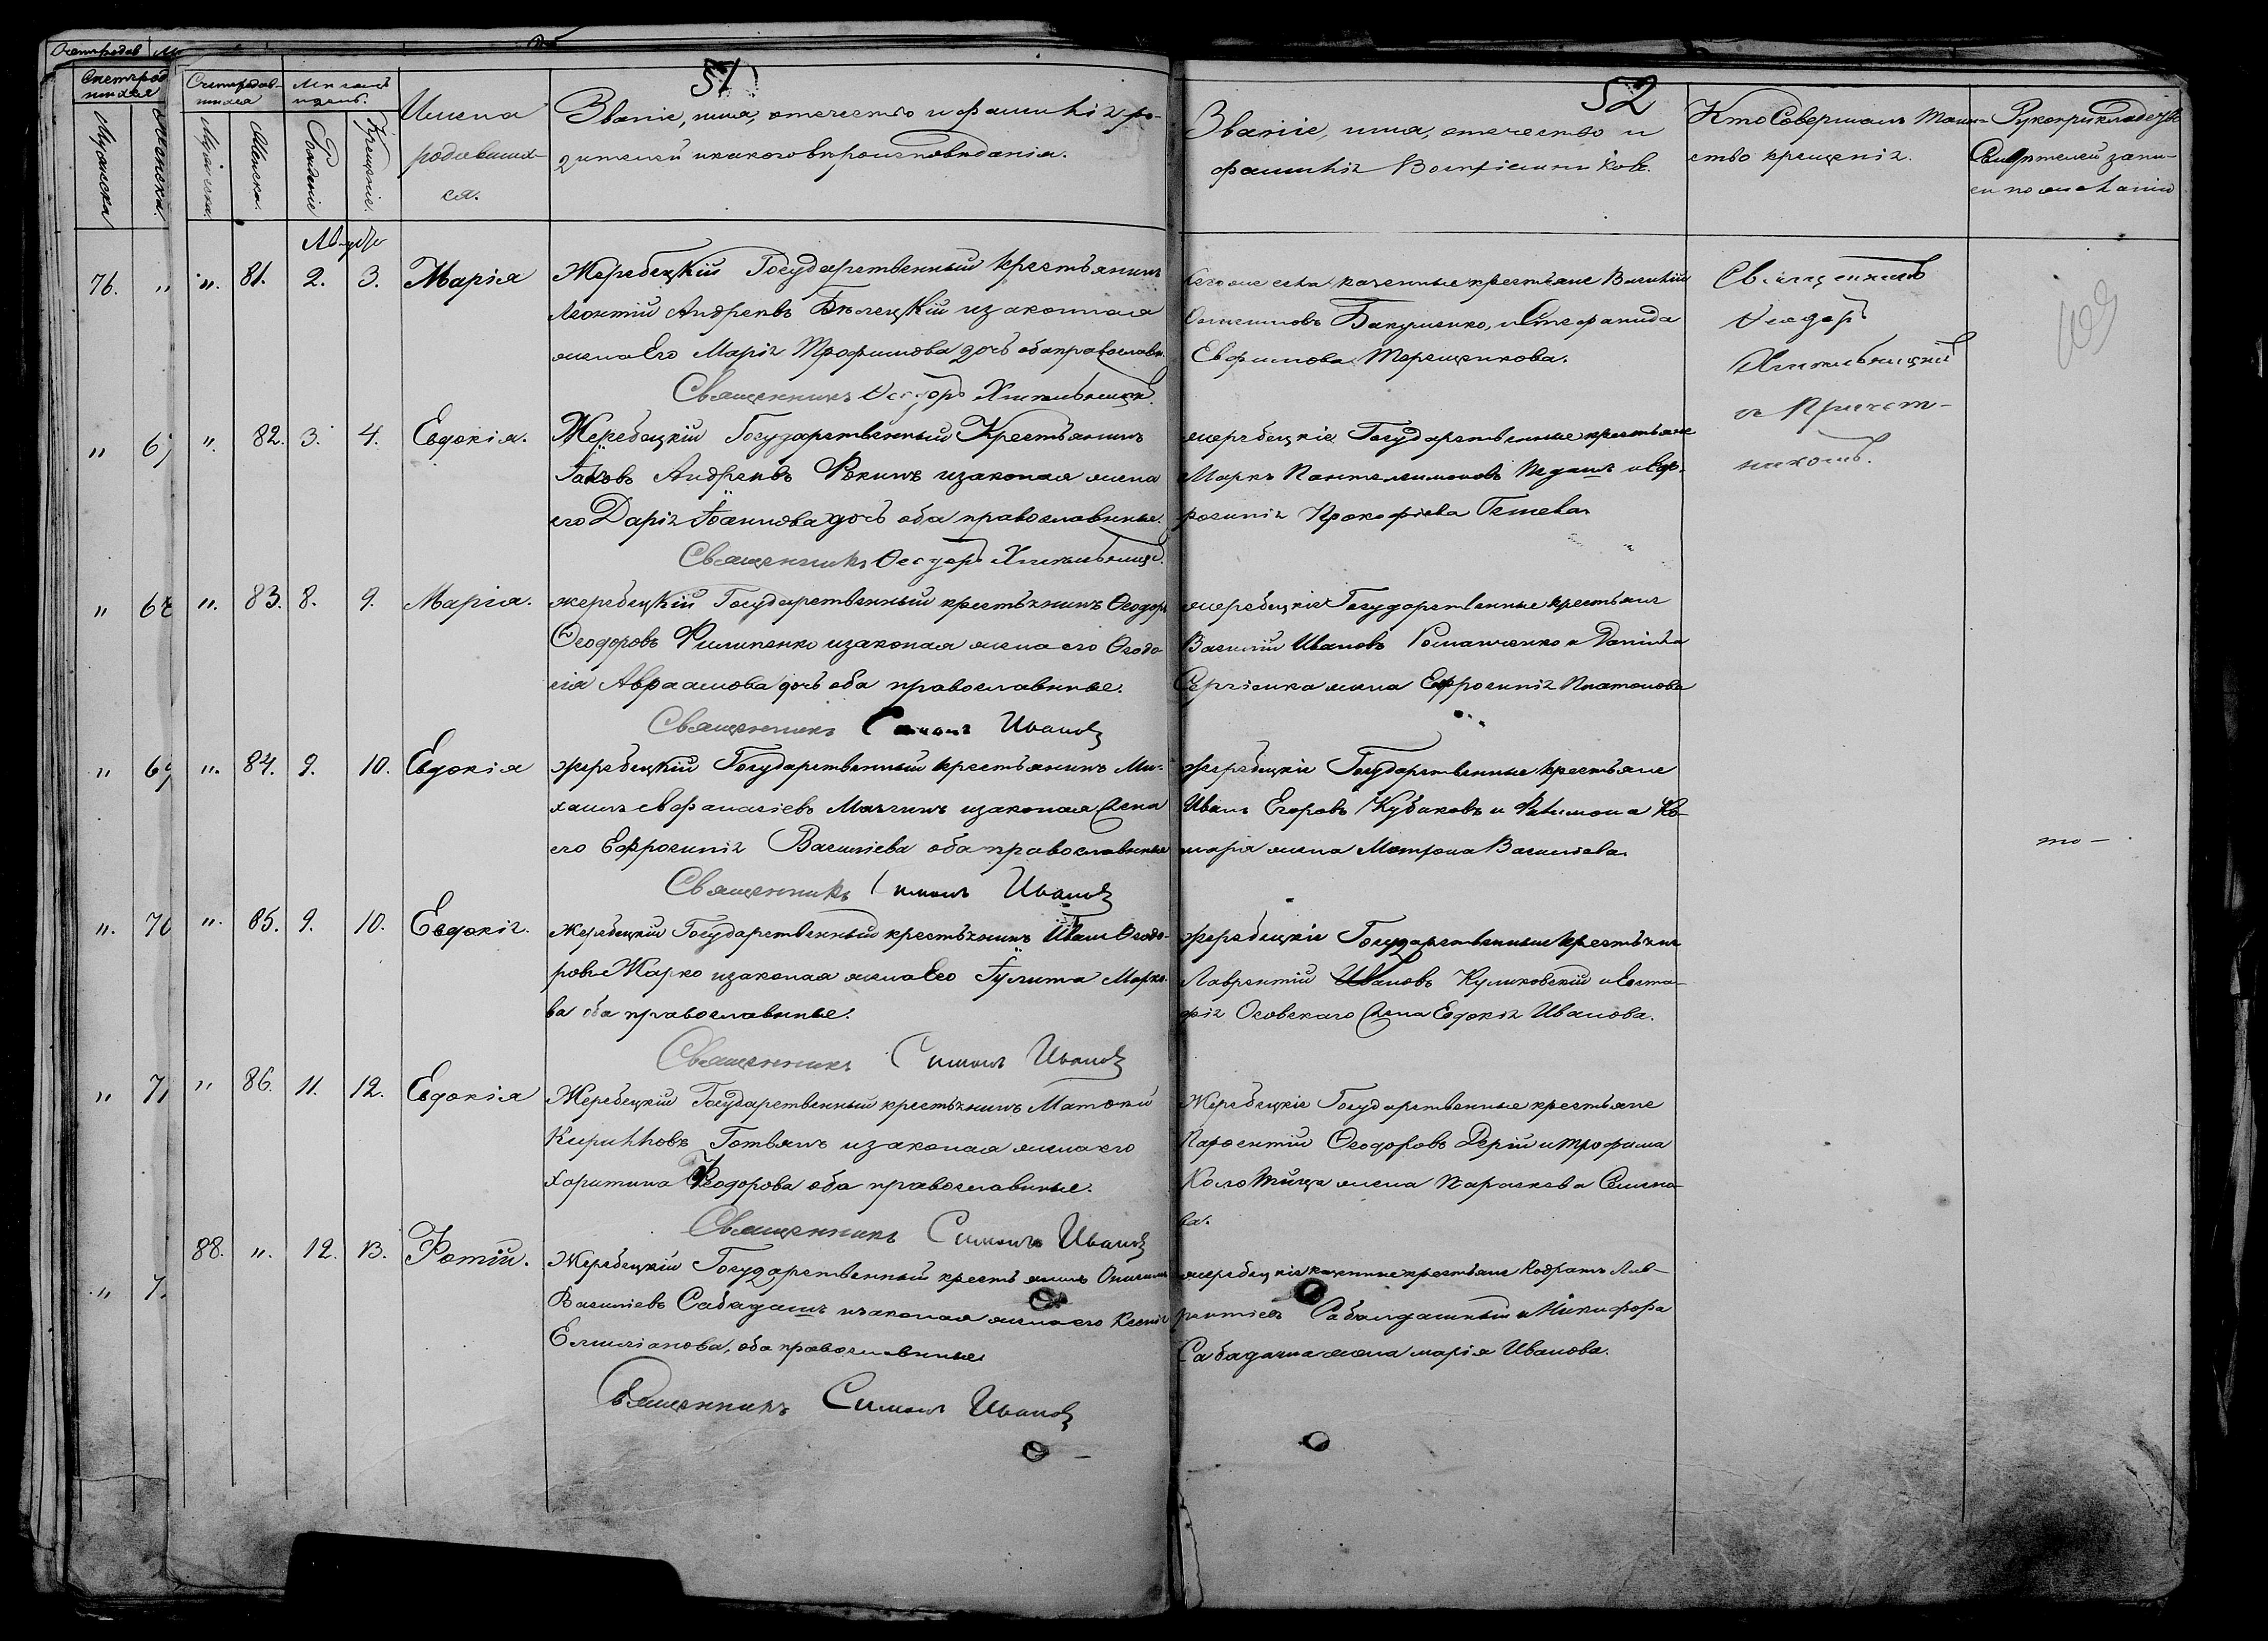 51
52
Счетъ родив-
шихся
Мѣсяцъ
и день.
Мужеска.
Женска.
Рожденіе
Крещеніе.
Имена
родивших-
ся.
Званіе, имя, отечество и фамилія ро-
дителей и какого вѣроисповѣданія.
Званіе, имя, отечество и
фамилія Воспріемниковъ.
Кто Совершалъ Таин-
ство крещенія.
Рукоприкладство
Свидѣтелей запи-
си по желанію
76. " ". 81. 2. 3. Марія
Жеребецкій Государственный крестьянинъ
Леонтій Андреевъ Бѣлецкій и законная
жена Его Марія Трофимова дочь оба православн.
Священникъ Ѳеодоръ Хмельницк.
сего же села казенные крестьяне Василій
Бакуменко, и Стефанида
Евфимова Терещенкова.
Священникъ
Ѳеодоръ
Хмельницкій
съ Причет-
никомъ.
" ". 82. 3. 4. Евдокія.
Жеребецкій Государственный Крестьянинъ
Іаковъ Андреевъ и законая жена
его Дарія Іоаннова дочь оба православные.
Священникъ Ѳеодоръ Хмельницк.
жеребецкіе Государственные крестьяне
Маркъ Пантелеимоновъ и Евф-
росинія Прокофіева
" ". 83. 8. 9. Марія.
жеребецкій Государственный крестьянинъ Ѳеодоръ
Ѳеодоровъ Филипенко и законая жена его Ѳеодо-
сія Авраамова дочь оба православные.
Священникъ Симонъ Ивановъ
жеребецкіе Государственные крестьяне
Василій Ивановъ Романченко и Даніила
Сергіенка жена Ефросинія Платонова
" 69 ". 84. 9. 10. Евдокія
жеребецкій Государственный крестьянинъ Ми-
хаилъ Афанасіевъ и законая жена
его Ефросинія Василіева оба православные
Священникъ Симонъ Ивановъ
жеребецкіе Государственные крестьяне
Иванъ Егоровъ Кубаковъ и Филимона Ко-
маря жена Матрона Василіева
то —
". 70 ". 85. 9. 10. Евдокія.
Жеребецкій Государственный крестьянинъ Иванъ Ѳеодо-
ровъ Жарко и законая жена Его Іулита Марко-
ва оба православные.
Священникъ Симонъ Ивановъ
жеребецкіе Государственные крестьяне
Лаврентій Ивановъ Куликовскій и Евста-
фія Осовскаго жена Евдокія Иванова.
" 71 " 86. 11. 12. Евдокія
Жеребецкій Государственный крестьянинъ Матѳей
Кирилловъ Готвянъ и законая жена его
Харитина Ѳеодорова оба православные.
Священникъ Симонъ Ивановъ
Жеребецкіе Государственные крестьяне
Парѳентій Ѳеодоровъ Дерій и Трофима
жена Параскева Семено-
ва.
" 88. ". 12. 13. Фотій.
Жеребецкій Государственный крестьянинъ Онисимъ
Василіевъ Сабадашъ и законая жена его Ксенія
Емиліанова, оба православные
Священникъ Симонъ Ивановъ
жеребецкіе казенные крестьяне Кодратъ Лав-
рентіевъ и Никифора
Сабадаша жена марія Иванова.